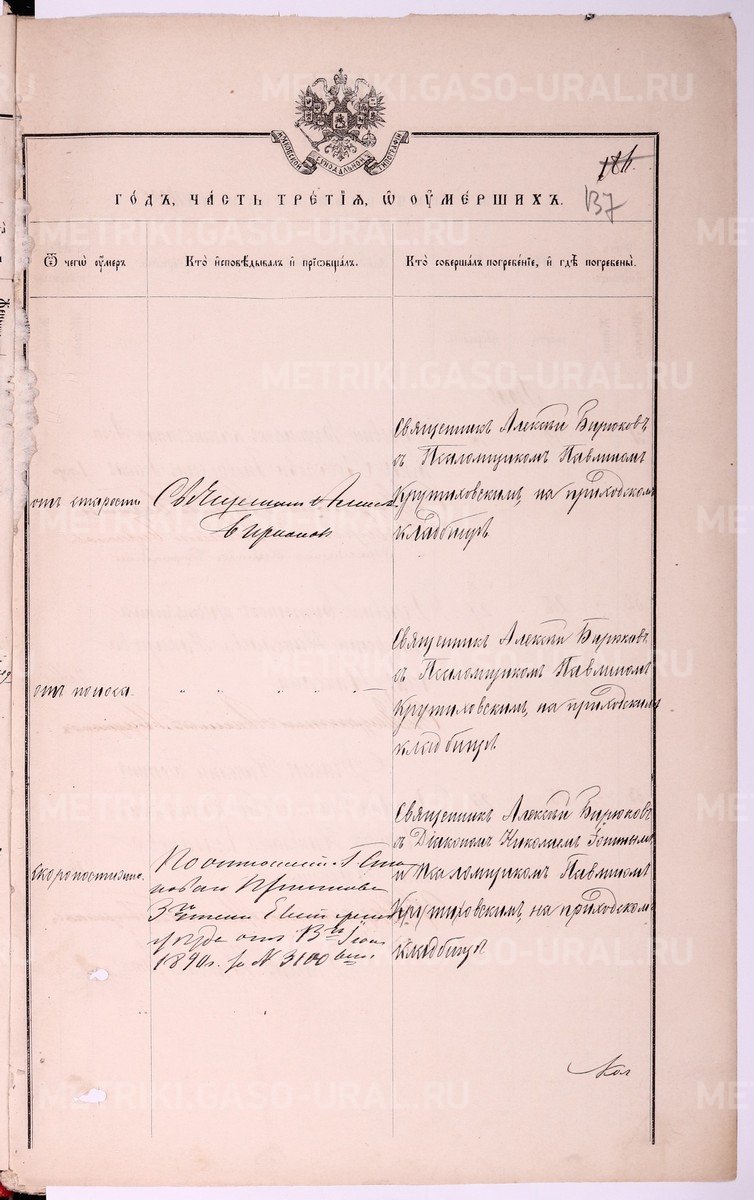 METRIKI.GASO-URAL.RU
МОСКОВСКОЙ СѴНОДАЛЬНОЙ ТИПОГРАФІИ
186.
137
ГОДЪ, ЧАСТЬ ТРЕТІЯ, Ѿ ОУМЕРШИХЪ.
Ѿ чегѡ оумеръ
Кто исповѣдывалъ и пріѡбщалъ.
Кто совершалъ погребеніе, и гдѣ погребены.
отъ старости
Священникъ Алексѣй
Бирюковъ
Священникъ Алексѣй Бирюковъ
съ Псаломщикомъ Павлиномъ
Крутиховскимъ, на приходскомъ
кладбищѣ
отъ поноса.
" " " " " —
Священникъ Алексѣй Бирюковъ,
съ Псаломщикомъ Павлиномъ
Крутиховскимъ, на приходскомъ
кладбищѣ
скоропостижно.
По отношенію Г. Стано
ваго Пристава
3го стана
уѣзда отъ 13го
1890 г. за N 3100
Священникъ Алексѣй Бирюковъ
съ Діакономъ Николаемъ
и Псаломщикомъ Павлиномъ
Крутиховскимъ, на приходскомъ
кладбищѣ